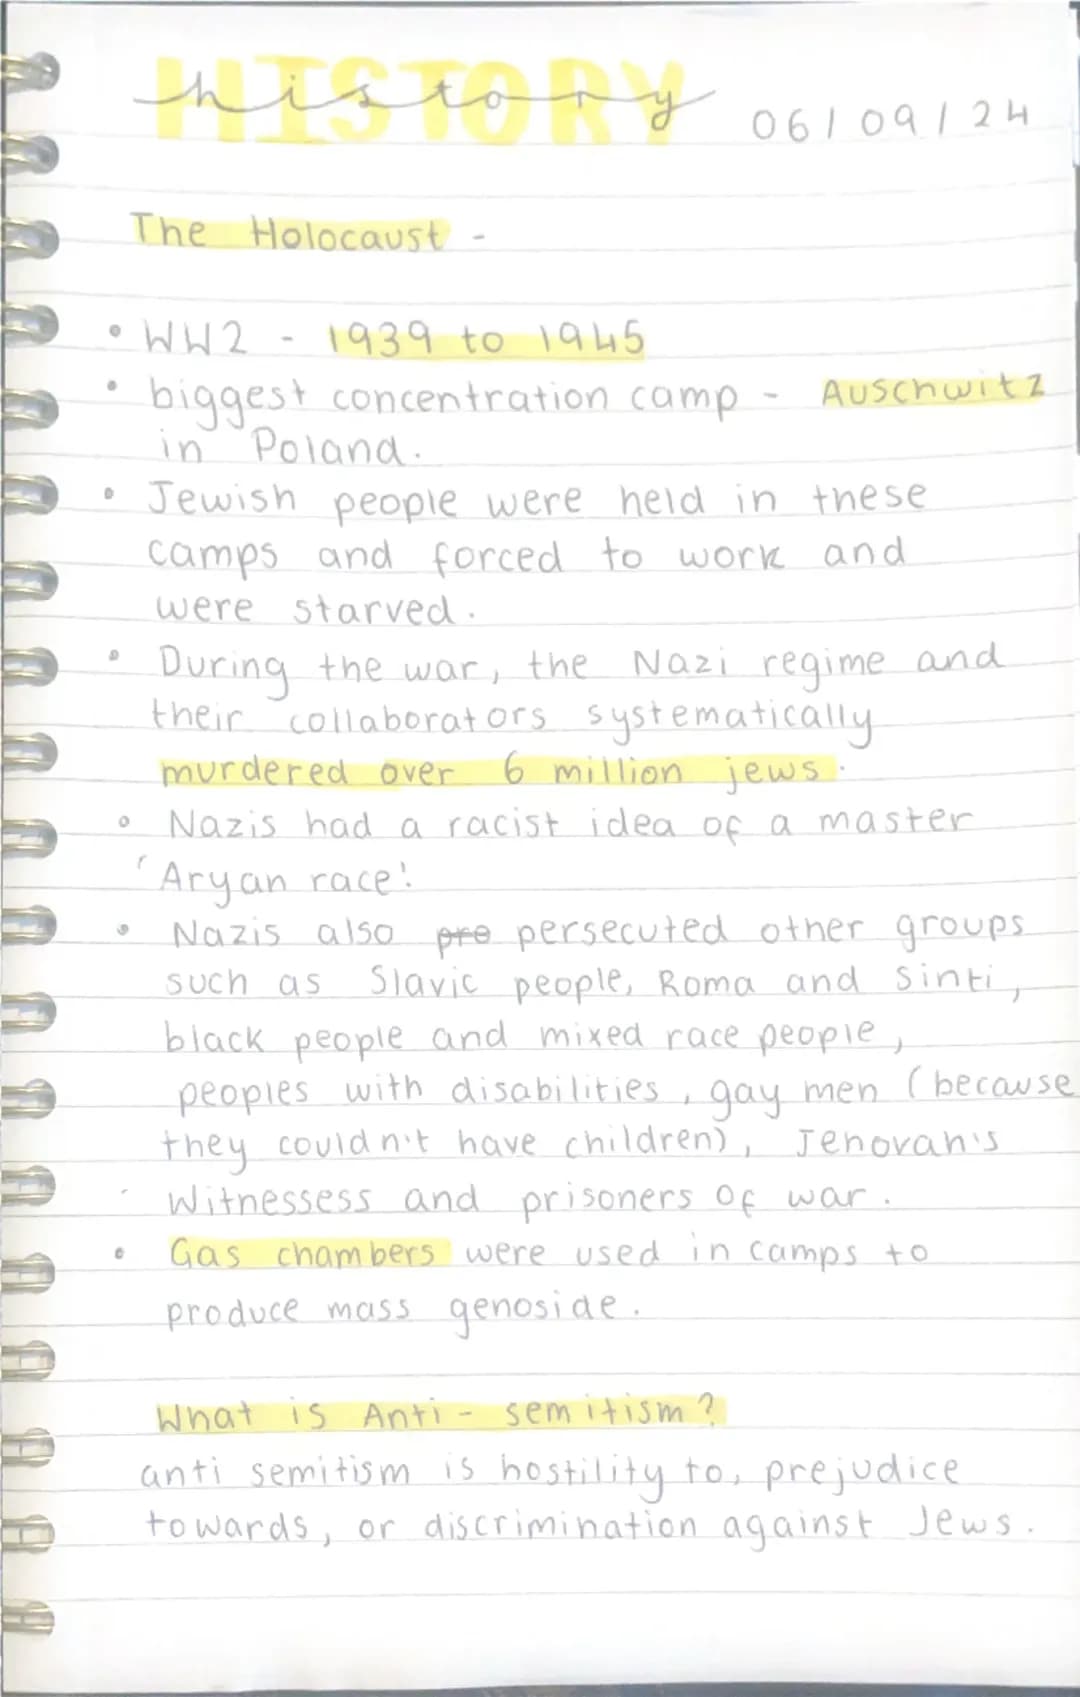 HISTORY
history 06/09/24
The Holocaust -
• WW2 - 1939 to 1945
• biggest concentration camp - Auschwitz
in Poland.
• Jewish people were held in these
camps and forced to work and
were starved.
• During the war, the Nazi regime and
their collaborators systematically
murdered over 6 million jews.
• Nazis had a racist idea of a master
'Aryan race'.
• Nazis also pre persecuted other groups
such as Slavic people, Roma and Sinti,
black people and mixed race people,
peoples with disabilities, gay men (because
they couldn't have children), Jehovah's
Witnessess and prisoners of war.
• Gas chambers were used in camps to
produce mass genoside.
What is Anti-semitism?
anti semitism is hostility to, prejudice
towards, or discrimination against Jews.